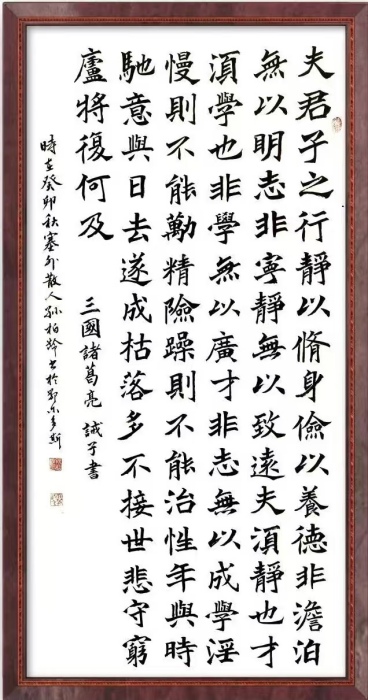 夫君子之行靜以脩身儉以養德非澹泊
無以明志非寧靜無以致遠夫湏靜也才
湏學也非學無以廣才非志無以成學淫
慢則不能勵精險躁則不能治性年與時
馳意與日去遂成枯落多不接世悲守窮
廬將復何及
三國諸葛亮 誡子書
時在癸卯秋塞外散人孙柏龄书於鄂尔多斯